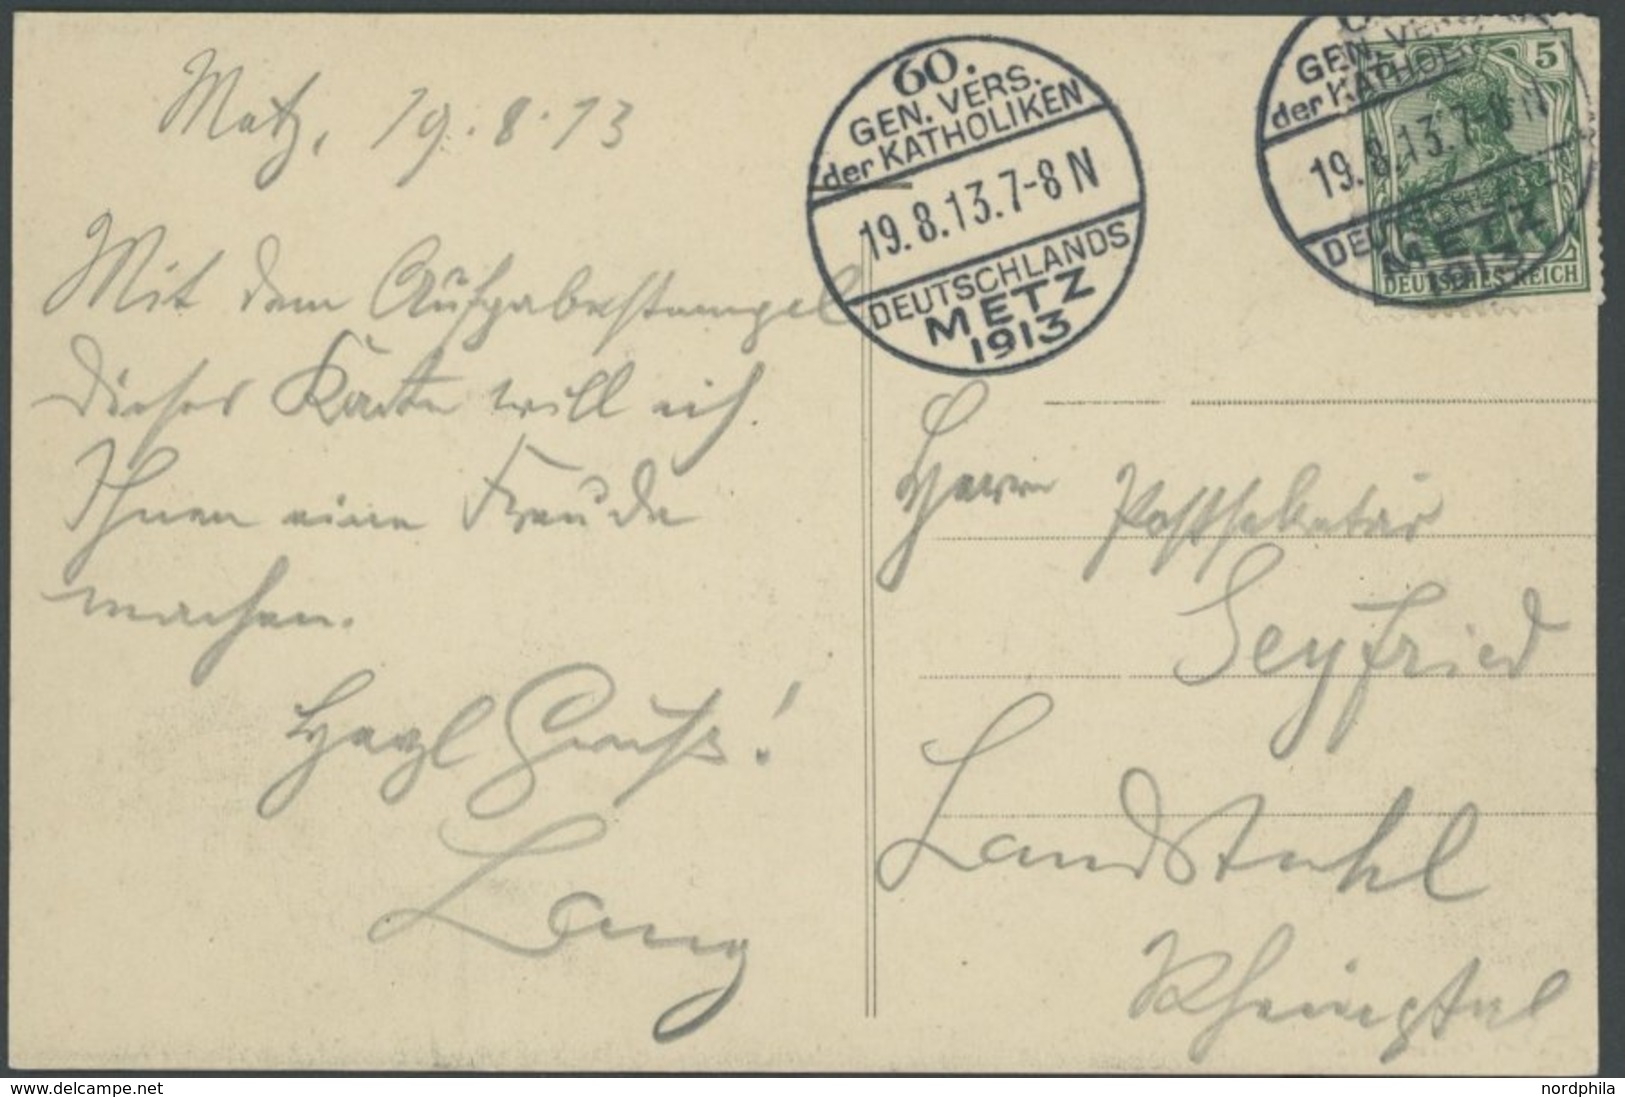 Metz, 19.8.13
Mit dem Aufgabestempel
dieser Karte will ich
Ihnen eine Freude
machen.
Herzl Gruß!
Lang
60.
GEN. VERS.
der KATHOLIKEN
19.8.13.7-8 N
DEUTSCHLANDS
METZ
1913
GEN. VERS.
der KATHOLIKEN
19.8.13.7-8 N
DEUTSCHLANDS
METZ
1913
5
DEUTSCHES REICH
Herrn Postsekretär
Seyfried
Landstuhl
Rheinpfal
www.delcampe.net
nordphila